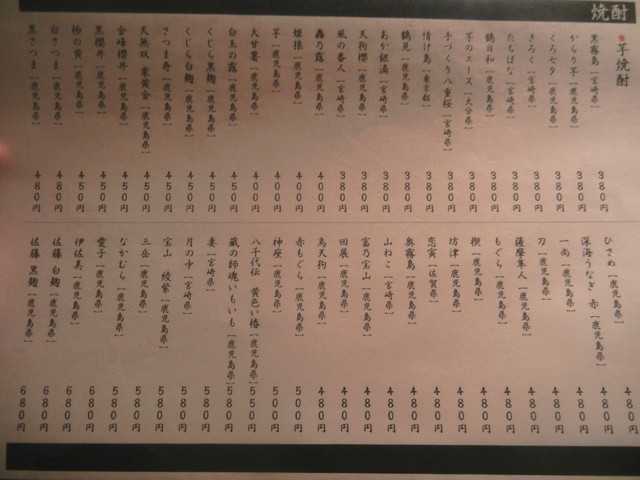 焼酎
芋焼酎
黒霧島［宮崎県］ 380円
からり芋［鹿児島県］ 380円
くろ七夕［鹿児島県］ 380円
きろく［宮崎県］ 380円
たちばな［宮崎県］ 380円
鶴日和［鹿児島県］ 380円
芋のエース［大分県］ 380円
手づくり八重桜［宮崎県］ 380円
情け島［東京都］ 380円
鶴見［鹿児島県］ 380円
あか銀滴［宮崎県］ 380円
天狗櫻［鹿児島県］ 380円
風の番人［宮崎県］ 380円
轟乃露［鹿児島県］ 400円
姫椿［鹿児島県］ 400円
芋［鹿児島県］ 400円
大甘薯［鹿児島県］ 400円
白玉の露［鹿児島県］ 450円
くじら黒麹［鹿児島県］ 450円
くじら白麹［鹿児島県］ 450円
さつま寿［鹿児島県］ 450円
天無双 東黄金［鹿児島県］ 450円
金峰櫻井［鹿児島県］ 450円
黒櫻井［鹿児島県］ 450円
極の黄［鹿児島県］ 450円
白さつま［鹿児島県］ 480円
黒さつま［鹿児島県］ 480円
ひさめ［鹿児島県］ 480円
深海うなぎ 赤［鹿児島県］ 480円
一尚［鹿児島県］ 480円
刀［鹿児島県］ 480円
薩摩隼人［鹿児島県］ 480円
もぐら［鹿児島県］ 480円
楔［鹿児島県］ 480円
坊津［鹿児島県］ 480円
恋寅［佐賀県］ 480円
奥霧島［鹿児島県］ 480円
山ねこ［宮崎県］ 480円
富乃宝山［鹿児島県］ 480円
回展［鹿児島県］ 480円
烏天狗［鹿児島県］ 480円
赤もぐら［鹿児島県］ 500円
神座［鹿児島県］ 500円
八千代伝 黄色い椿［鹿児島県］ 550円
蔵の師魂いもいも［鹿児島県］ 550円
妻［宮崎県］ 580円
月の中［宮崎県］ 580円
宝山 綾紫［鹿児島県］ 580円
三岳［鹿児島県］ 580円
なかむら［鹿児島県］ 580円
愛子［鹿児島県］ 680円
伊佐美［鹿児島県］ 680円
佐藤 白麹［鹿児島県］ 680円
佐藤 黒麹［鹿児島県］ 680円